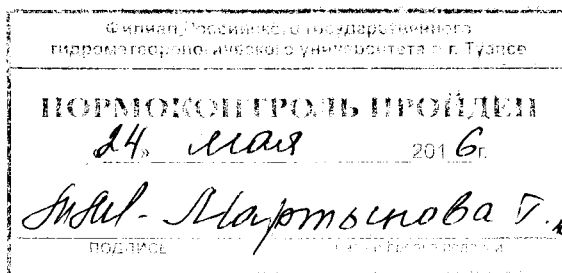 Филиал Российского государственного
гидрометеорологического университета в г. Туапсе
НОРМОКОНТРОЛЬ ПРОЙДЕН
24» мая 2016г.
Мартынова Т.
подпись